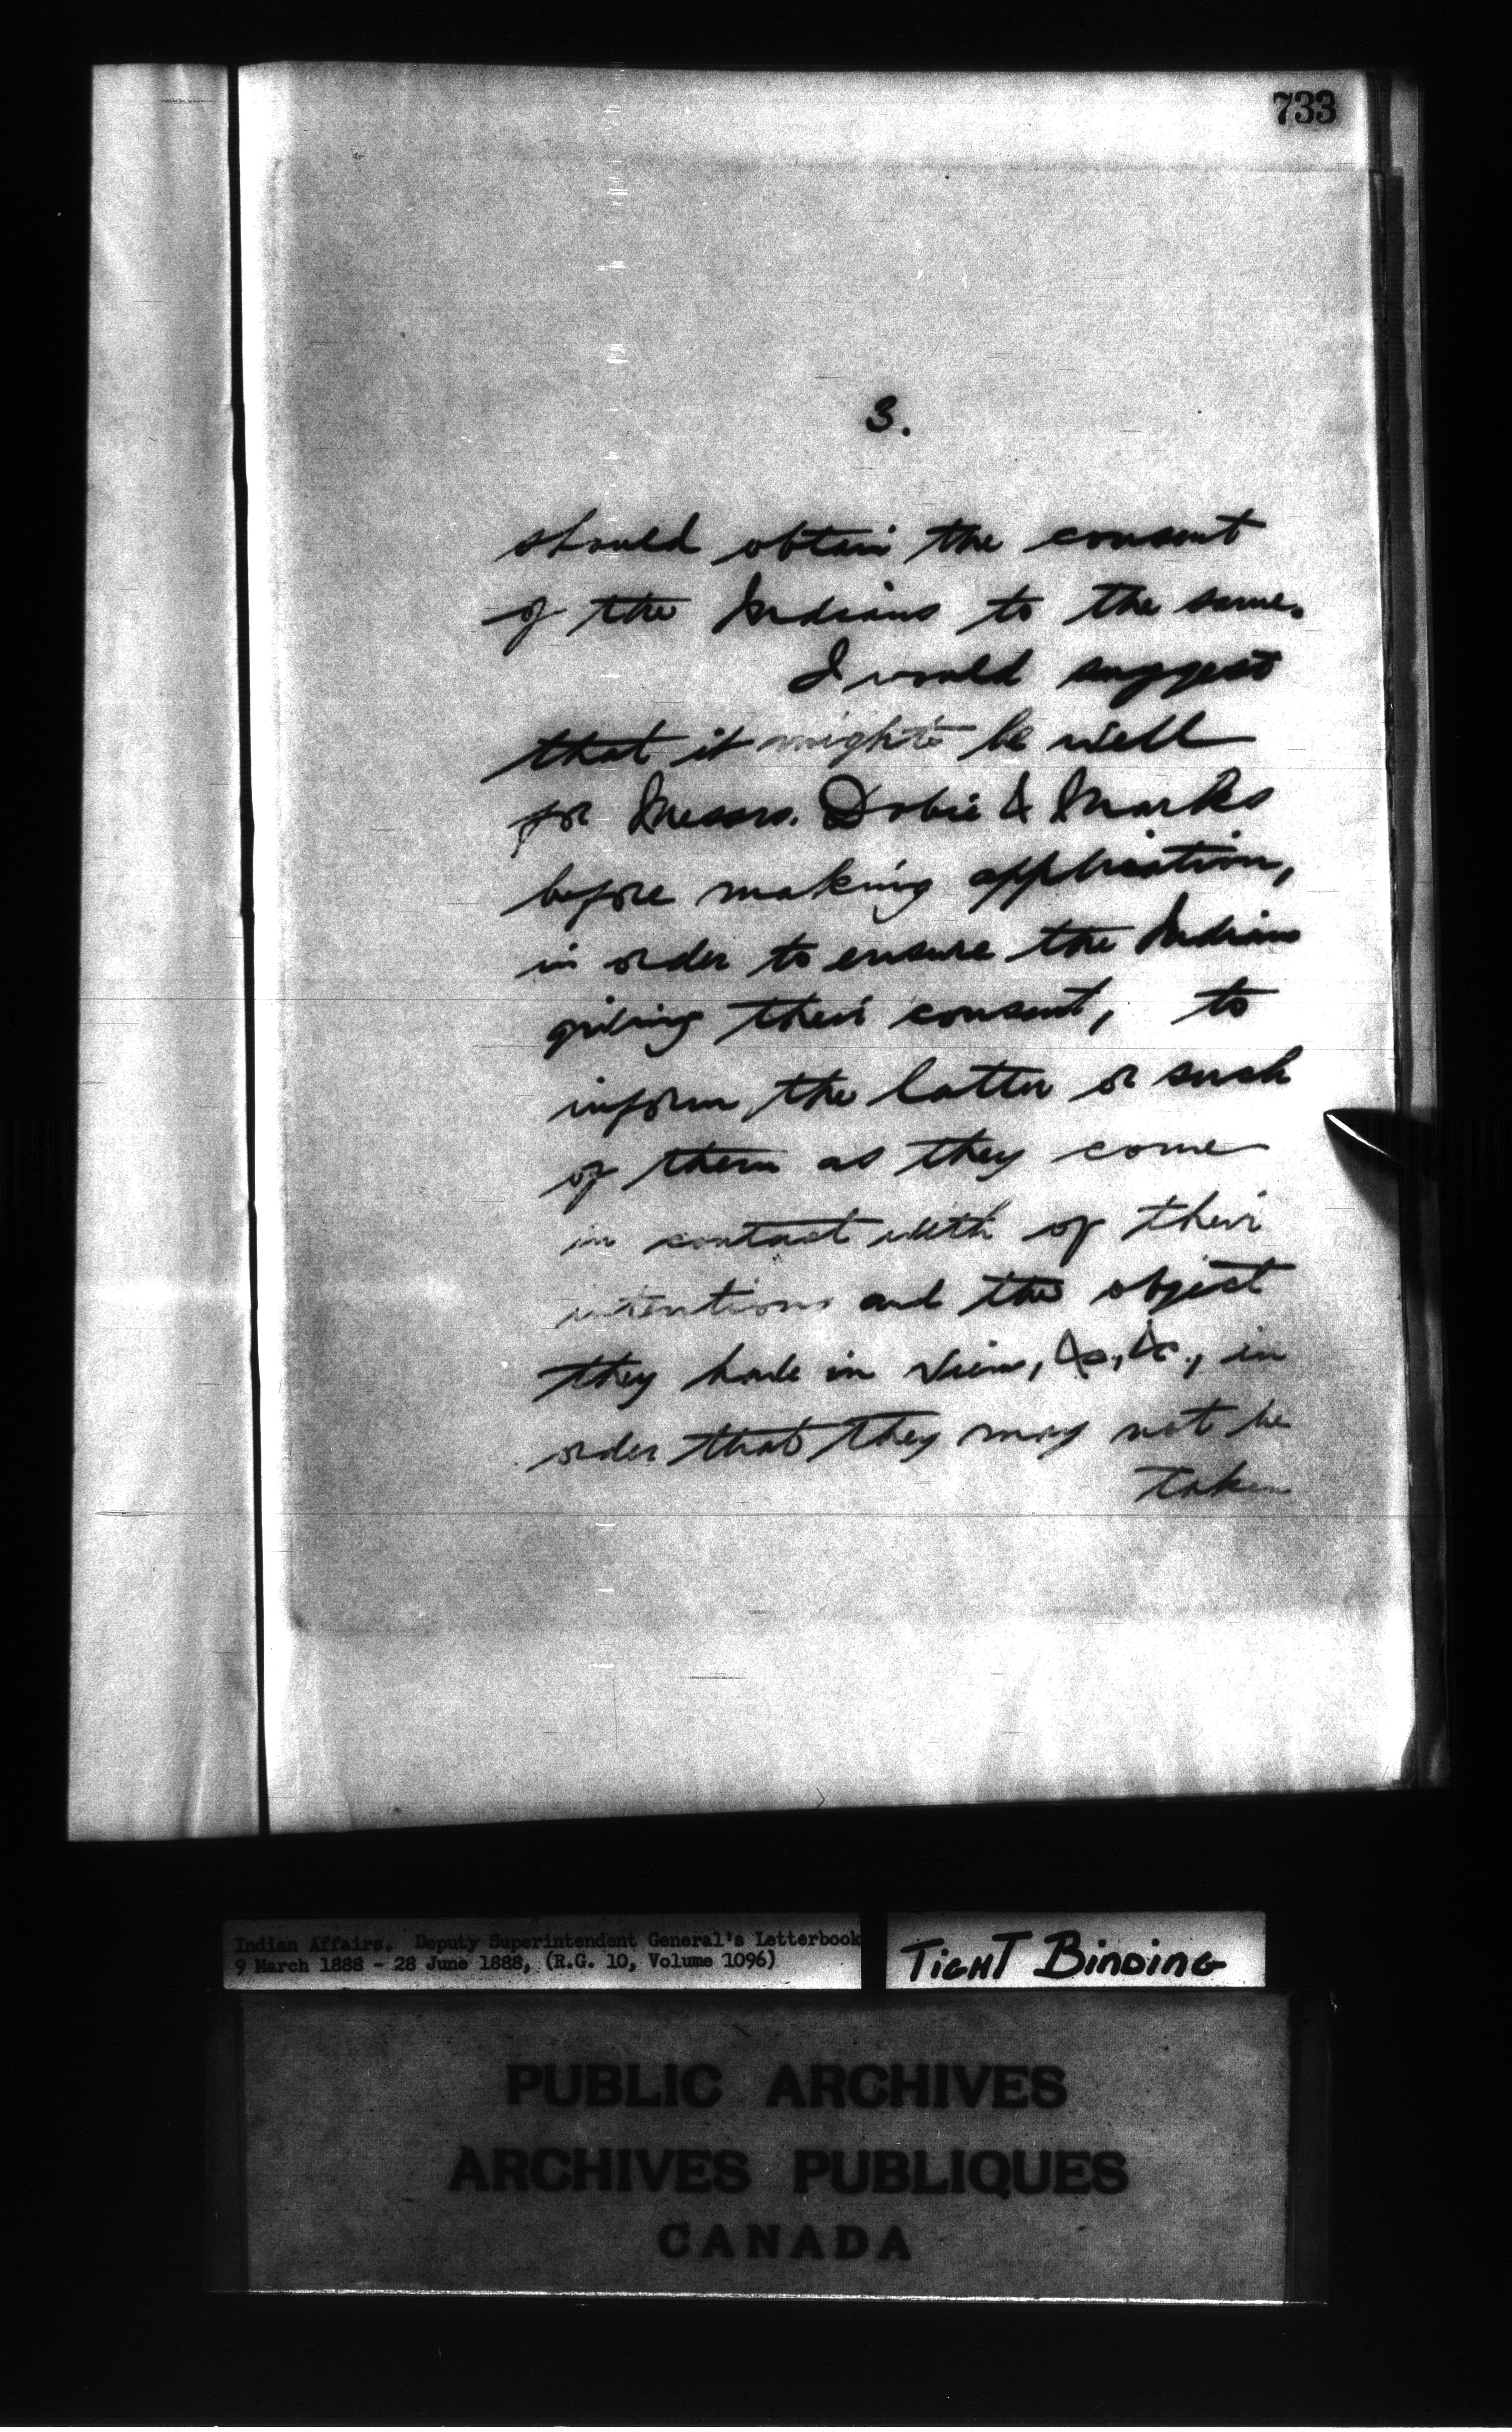 733
3.
should obtain the consent
of the Indians to the same.
I would suggest
that it might be well
for Messrs. Dobie & Marks
before making application,
in order to ensure the Indians
giving their consent, to
inform the latter or such
of them as they come
in contact with of their
intentions and the object
they have in view, &c., &c., in
order that they may not be
taken
Indian Affairs. Deputy Superintendent General's Letterbook
9 March 1888 - 28 June 1888, (R.G. 10, Volume 1096)
TIGHT BINDING
PUBLIC ARCHIVES
ARCHIVES PUBLIQUES
CANADA